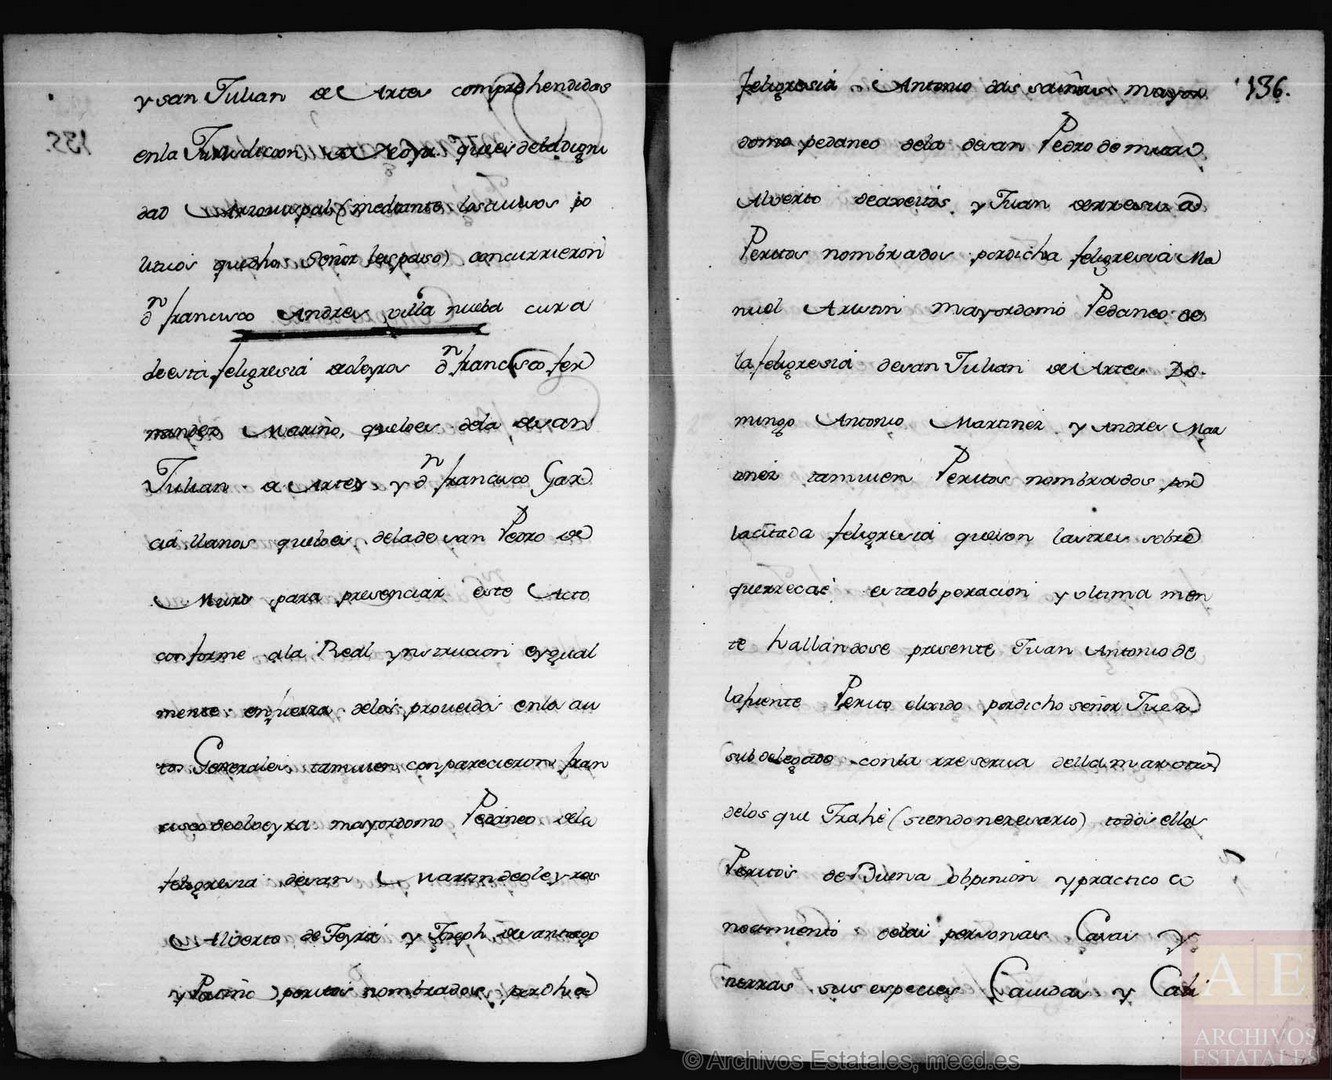 y san Julian de Artes comprehendidas
en la Jurisdicion que es de la Digni
dad Arzouispal (mediante los auisos po
liticos que dho Señor les paso) concurrieron
dn francisco Andres villa nueba cura
de esta feligresia de oleyros dn francisco fer
nandez Mariño, que lo es de la de san
Julian de Artes y dn francisco Gar
cia llanos que lo es de la de san Pedro de
Muro para presenciar este Acto
conforme a la Real ynstrucion e ygual
mente en fuerza de las proueida en lo au
tos Generales tamuien comparecieron fran
cisco de oleyra mayordomo Pedaneo de la
feligresia de san Martin de oleyros
Alverto de Teyra y Joseph de santiago
y Patiño peritos nombrados por dha
feligresia Antonio das mayor 136.
domo pedaneo de la de san Pedro de muro
Alverto y Juan
Peritos nombrados por dicha feligresia Ma
nuel Mayordomo Pedaneo de
la feligresia de san Julian de Artes Do
mingo Antonio Martinez y Andres Mar
tinez tamuien Peritos nombrados por
la citada feligresia que son sobre
que rrecae esta obperacion y vltima men
te hallandose presente Juan Antonio de
la fuente Perito elexido por dicho señor Juez
subdelegado con la rreserua de llamar otro
de los que Trahe (siendo nezesario) todos ellos
Peritos de Buena obpinion y practico co
nocimiento de las personas Casas y
tierras sus especies Cauidas y Cali
© Archivos Estatales, mecd.es
AE
ARCHIVOS
ESTATALES